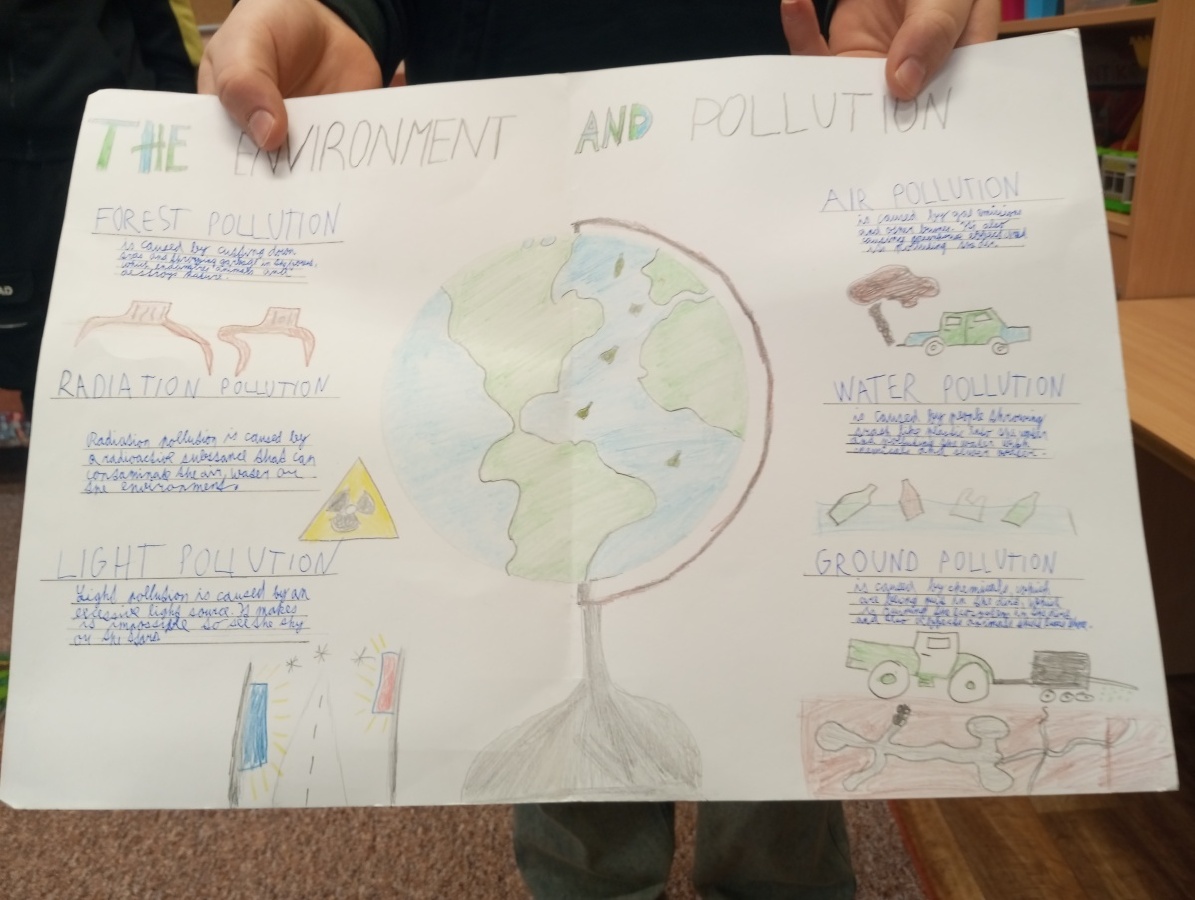 THE ENVIRONMENT AND POLLUTION
FOREST POLLUTION
is caused by cutting down
and throwing garbage in
animals and
destroys nature.
RADIATION POLLUTION
Radiation pollution is caused by
a radioactive substance that can
contaminate the air, water or
the environment.
LIGHT POLLUTION
Light pollution is caused by an
excessive light source. It makes
is impossible to see the sky
or the stars
AIR POLLUTION
is caused by gas emissions
and other It's also
causing greenhouse effect and
WATER POLLUTION
is caused by people throwing
trash like plastic into the water
and polluting the water with
chemicals and
GROUND POLLUTION
is caused by chemicals which
are being put in the dirt, which
is the in the dirt
and also animals that
AD